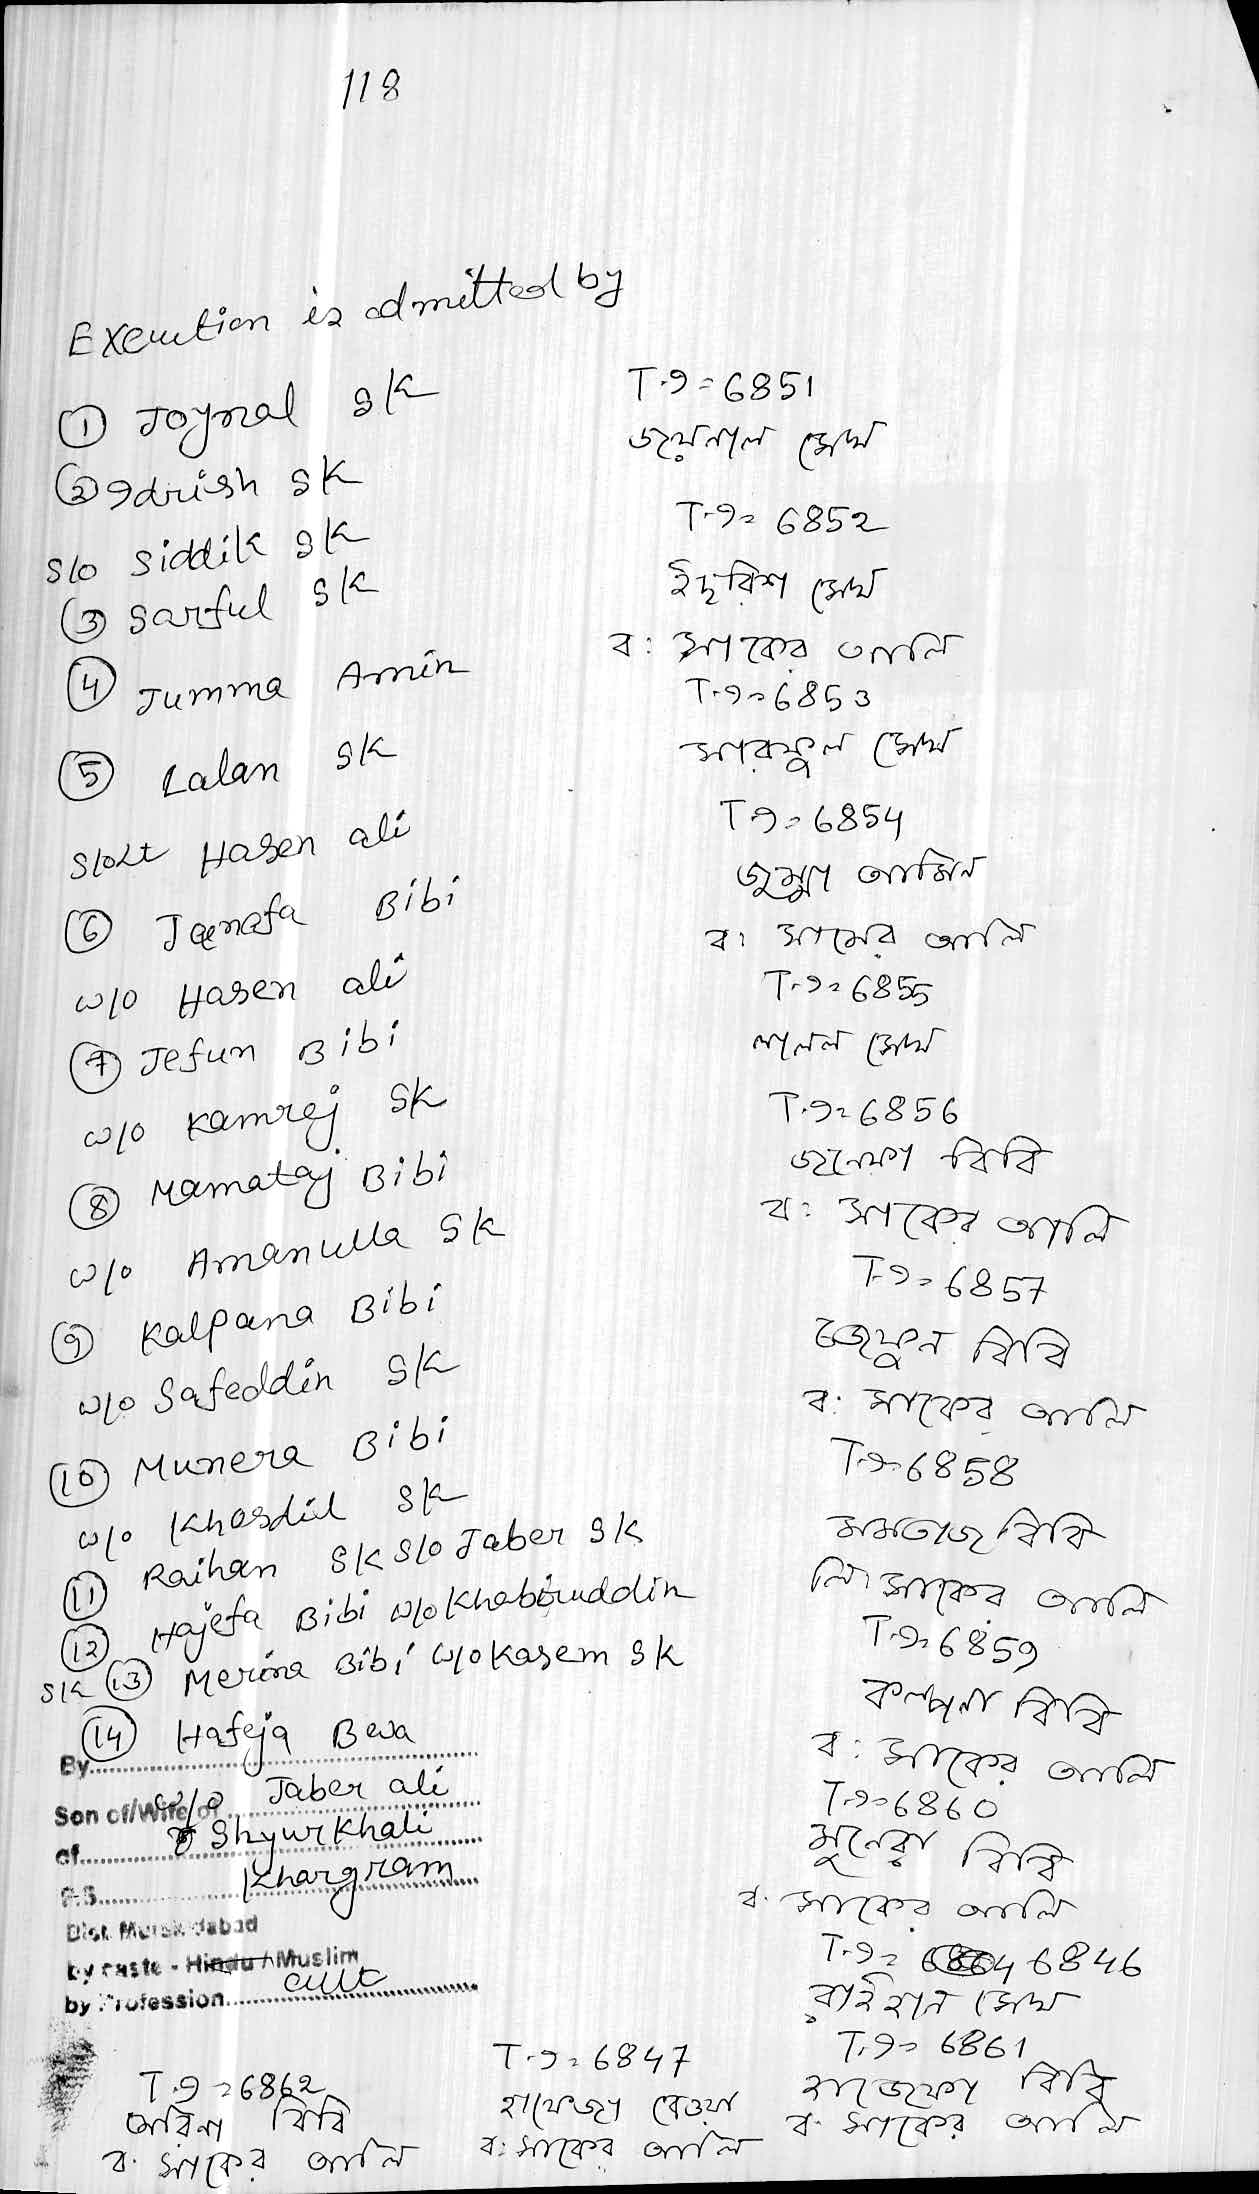 118
Execution is admitted by
① Joynal Sk
② Idrish Sk
S/o Siddik Sk
③ Sarful Sk
④ Jumma Amin
⑤ Lalan Sk
S/o Lt Hasen ali
⑥ Jaenafa Bibi
w/o Hasen ali
⑦ Jefun Bibi
w/o Kamrej Sk
⑧ Mamataj Bibi
w/o Amanulla Sk
⑨ Kalpana Bibi
w/o Safeddin Sk
⑩ Munera Bibi
w/o Khosdil Sk
⑪ Raihan Sk S/o Jaber Sk
⑫ Hajefa Bibi w/o Khabiruddin
Sk ⑬ Merina Bibi w/o Kasem Sk
⑭ Hafeja Bewa
By
Son of/Wife of w/o Jaber ali
of Shyurkhali
P.S. Khargram
Dist. Murshidabad
by caste - Hindu / Muslim
by Profession cult
T.I = 6851
জয়েনাল সেখ
T.I = 6852
ইদ্রিশ সেখ
ব: সাকের আলি
T.I = 6853
সারফুল সেখ
T.I = 6854
জুম্মা আমিন
ব: সাকের আলি
T.I = 6855
লালন সেখ
T.I = 6856
জনেফা বিবি
ব: সাকের আলি
T.I = 6857
জেফুন বিবি
ব: সাকের আলি
T.I = 6858
মমতাজ বিবি
লি: সাকের আলি
T.I = 6859
কল্পনা বিবি
ব: সাকের আলি
T.I = 6860
মুনেরা বিবি
ব: সাকের আলি
T.I = 6846
রাইহান সেখ
T.I = 6861
হাজেফা বিবি
ব: সাকের আলি
T.I = 6847
হাফেজা বেওয়া
ব: সাকের আলি
T.I = 6862
বিবি
ব: সাকের আলি